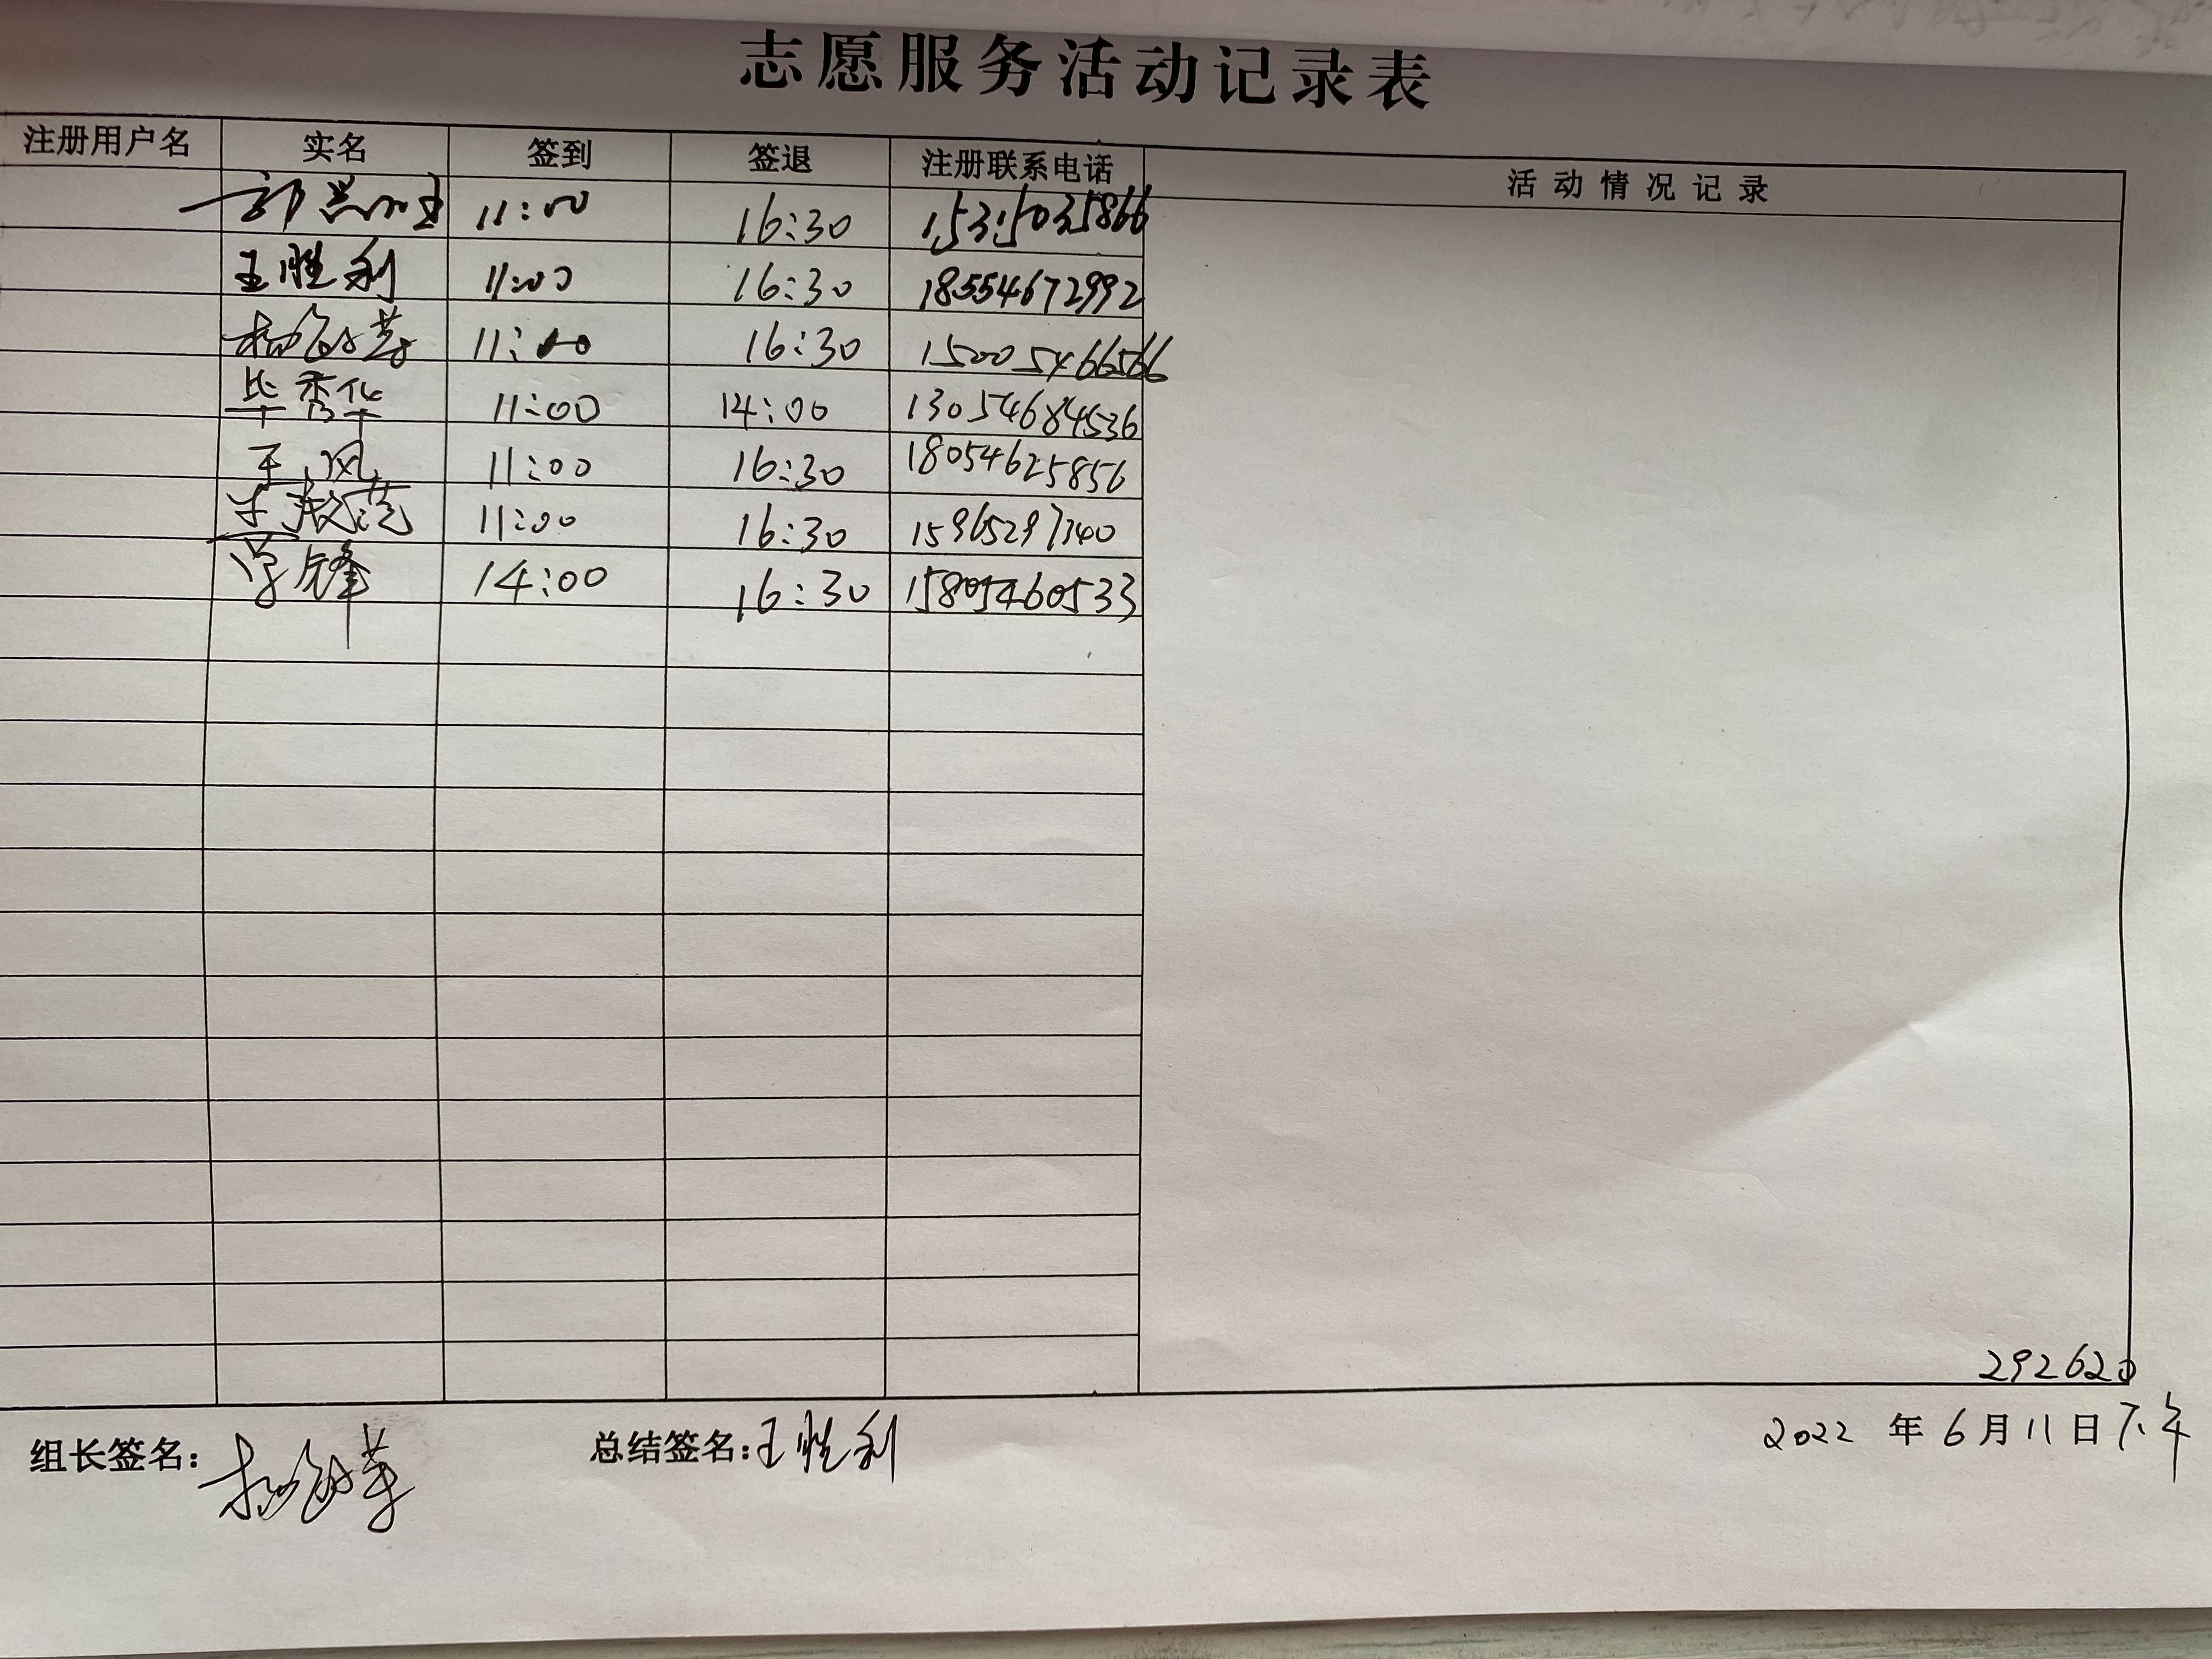 志愿服务活动记录表
注册用户名 实名 签到 签退 注册联系电话 活动情况记录
11:00 16:30 15315035866
王胜利 11:00 16:30 18554672992
11:00 16:30 15005466566
毕秀华 11:00 14:00 13054684536
王风 11:00 16:30 18054625856
11:00 16:30 15965297340
学锋 14:00 16:30 15805460533
292620
组长签名： 总结签名：王胜利 2022 年 6 月 11 日 下午